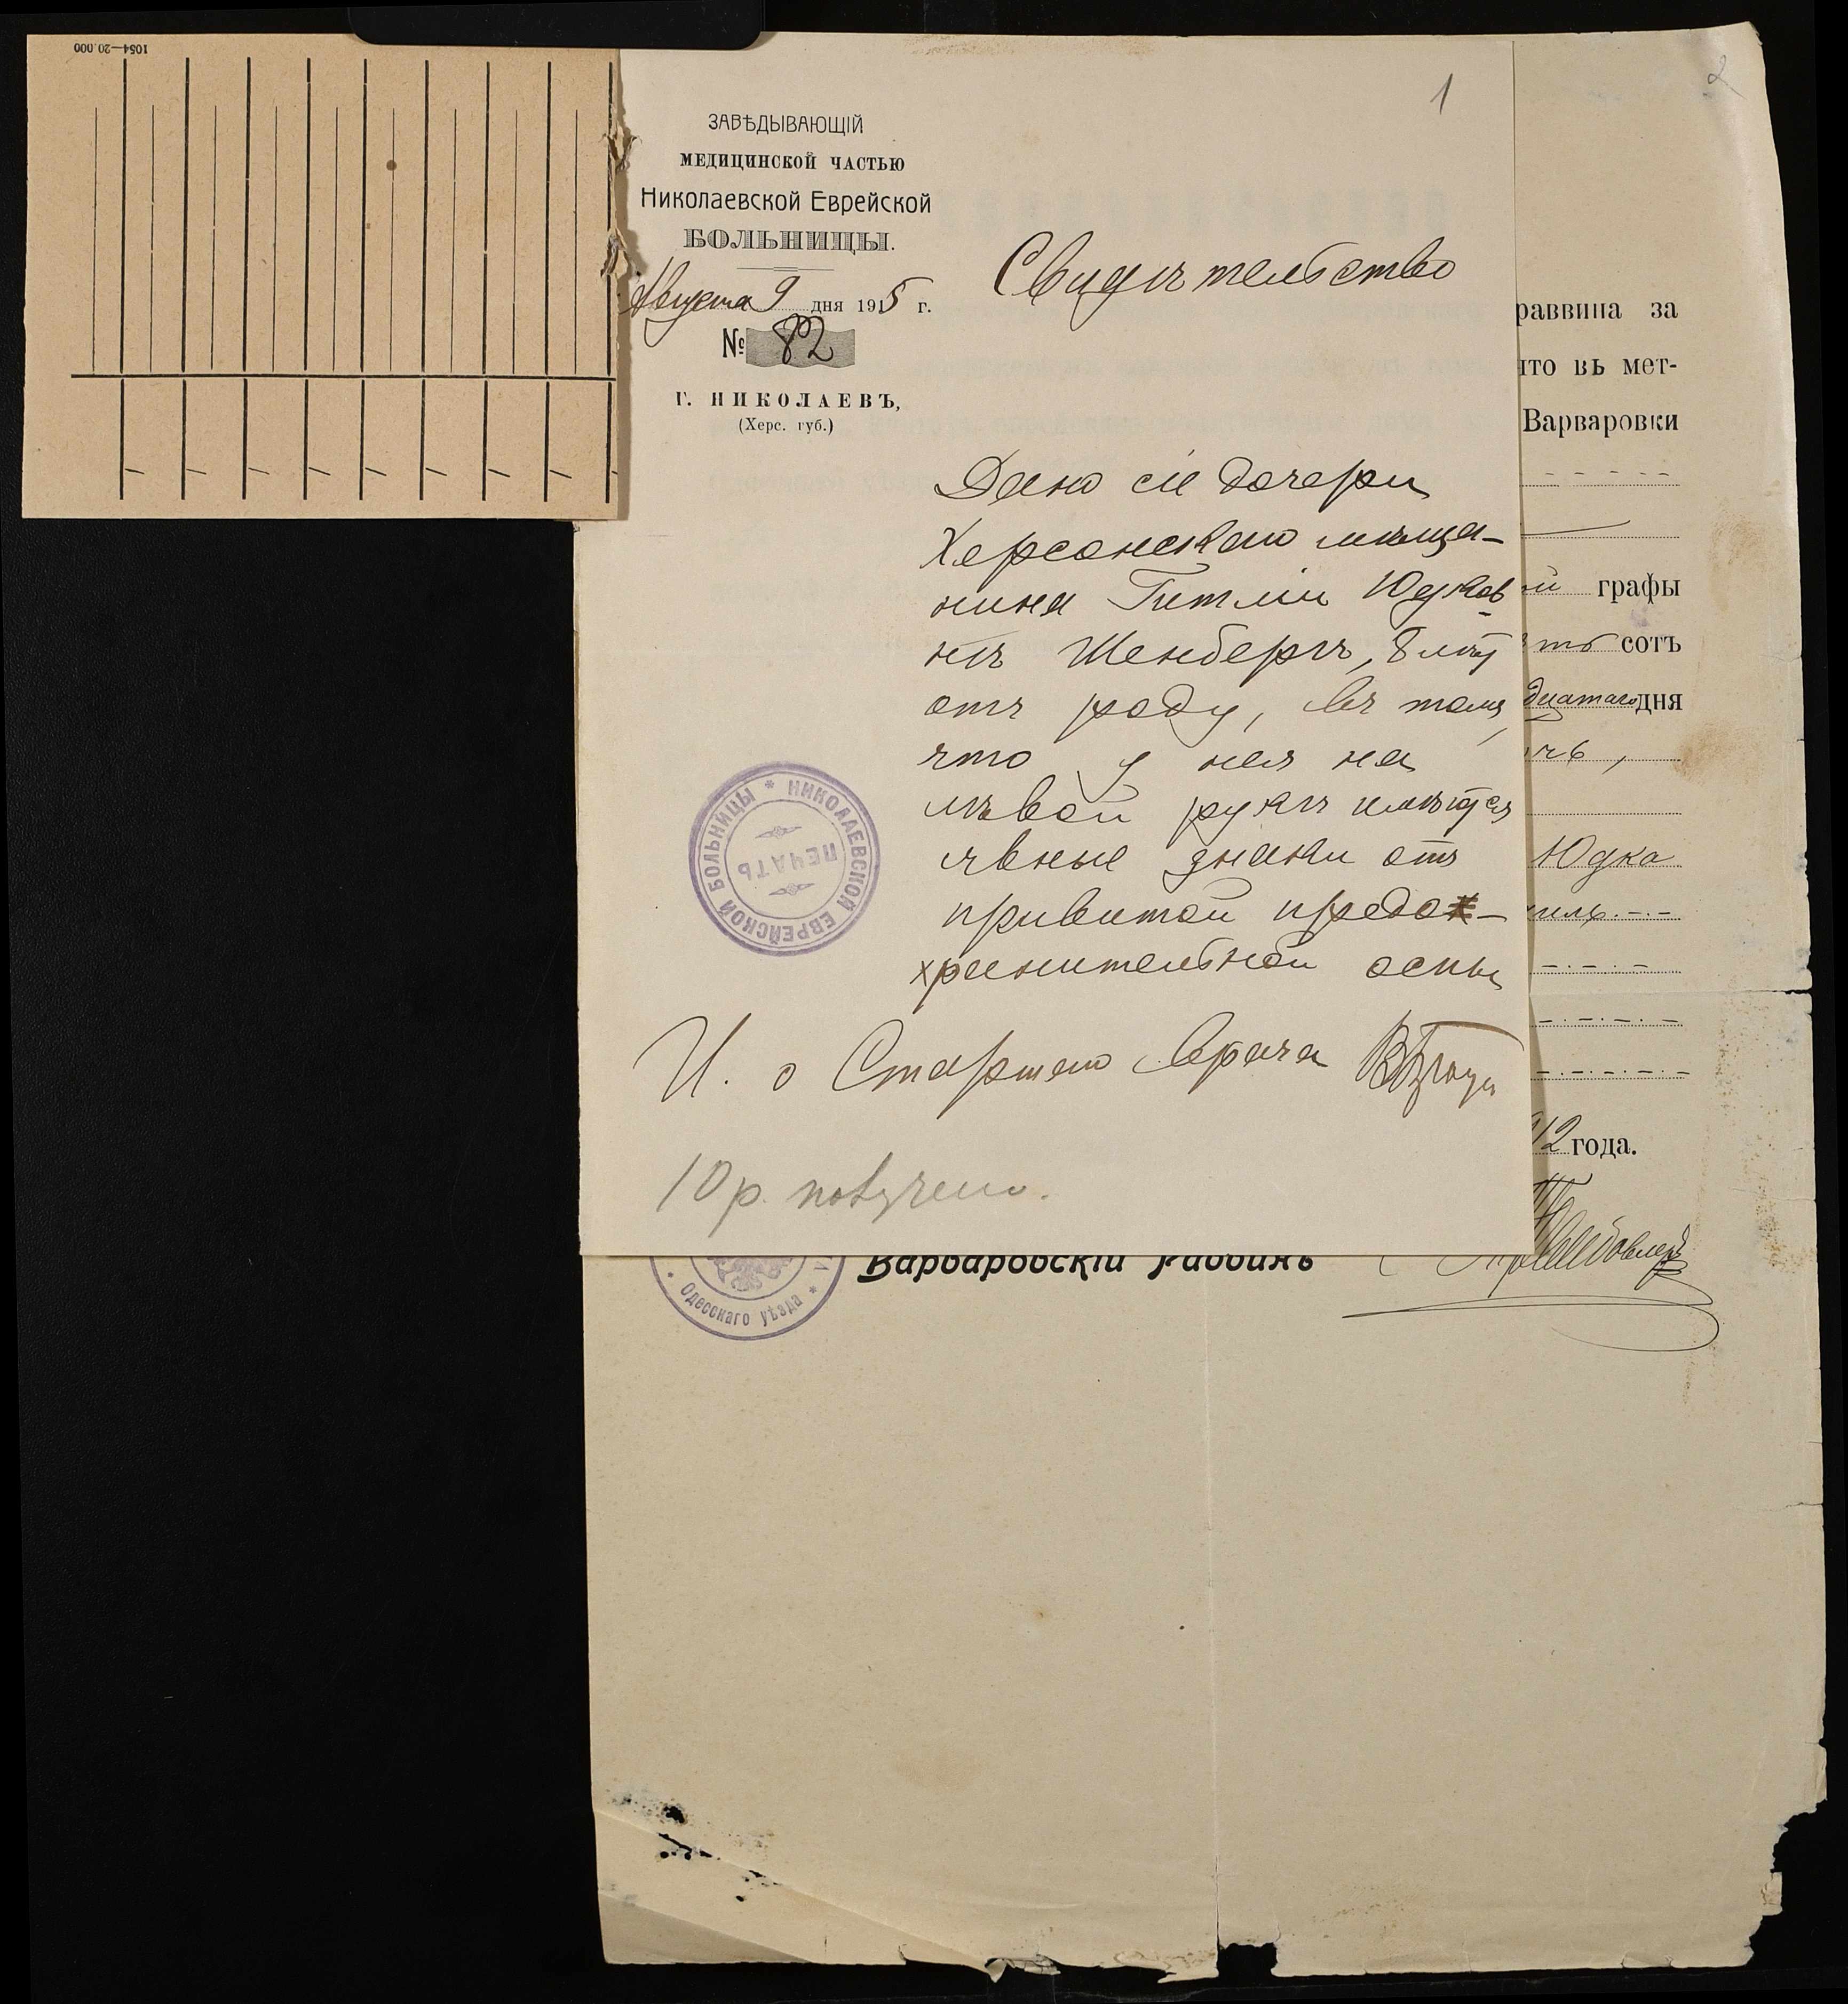 1054—20.000
1
2
ЗАВѢДЫВАЮЩІЙ
МЕДИЦИНСКОЙ ЧАСТЬЮ
Николаевской Еврейской
БОЛЬНИЦЫ.
Августа 9 дня 1915 г.
№ 82
Г. НИКОЛАЕВЪ,
(Херс. губ.)
Свидѣтельство
Дано сіе дочери
Херсонскаго мѣща-
нина Гитли Юдков
нѣ Шенбергъ, 8 лѣтъ
отъ роду, въ томъ,
что у нея на
лѣвой рукѣ имѣются
явные знаки отъ
привитой предо-
хранительной оспы
И. о Старшаго врача
10 р. получено.
НИКОЛАЕВСКОЙ ЕВРЕЙСКОЙ БОЛЬНИЦЫ *
ПЕЧАТЬ
раввина за
что въ мет-
Варваровки
графы
тъ сотъ
дцатаго дня
Юдка
12 года.
Варваровскій Раввинъ
Одесскаго уѣзда *